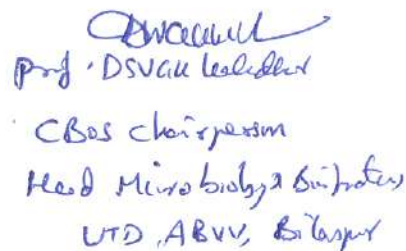 Prof. DSVGK
CBOS Chairperson
Head Microbiology & Bioinformatics
UTD, ABVV, Bilaspur